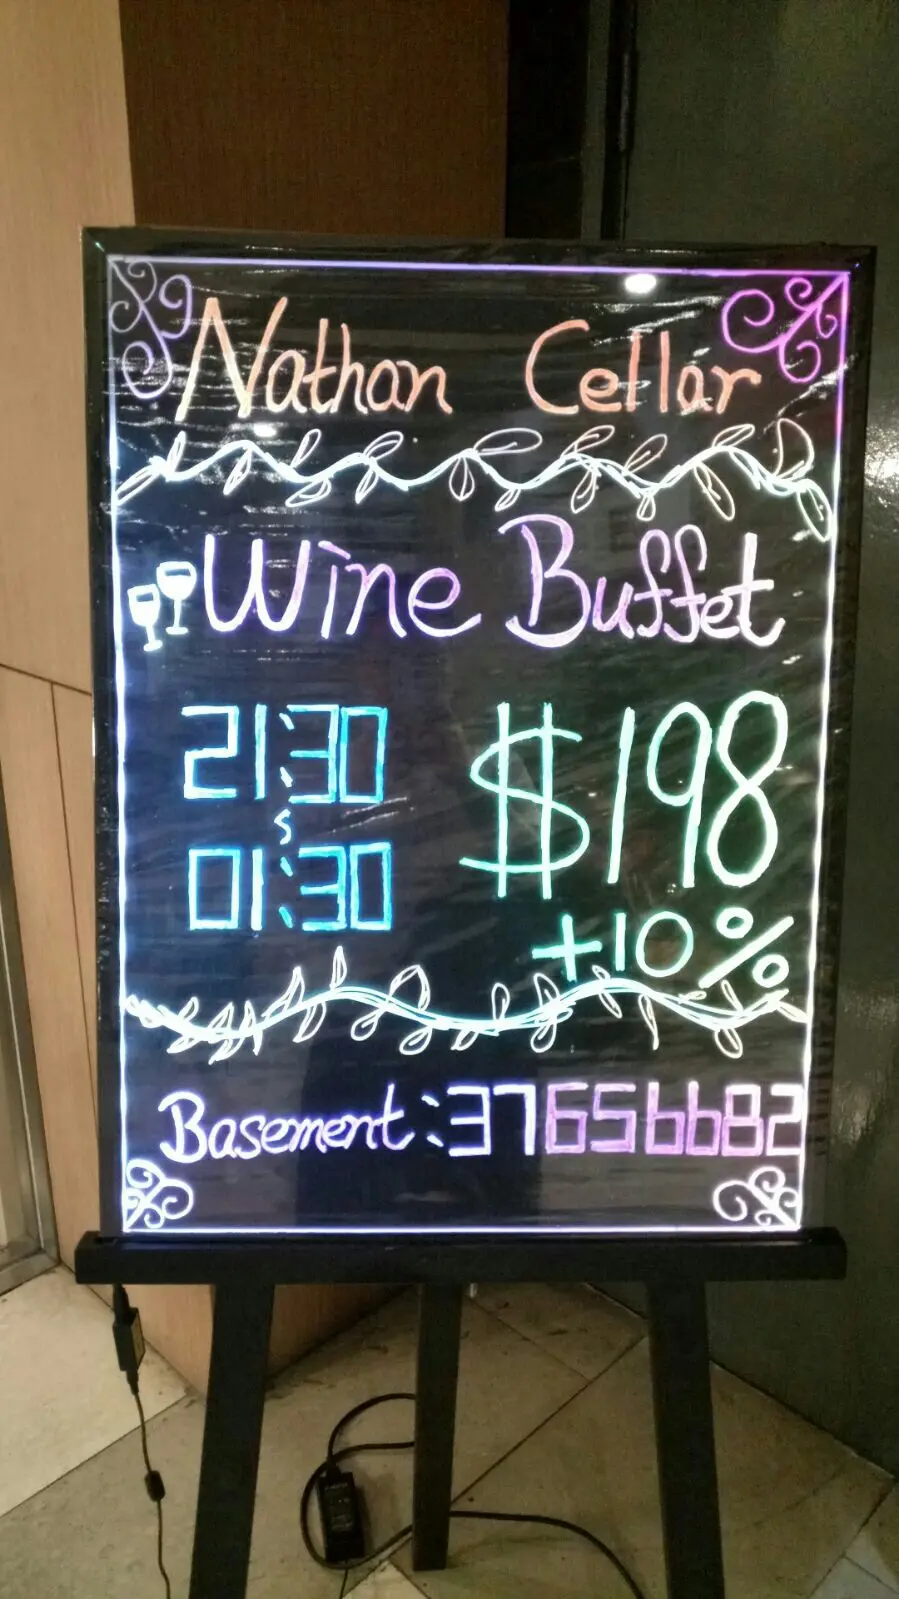 Nathan Cellar
Wine Buffet
21:30
~
01:30
$198
+10%
Basement:37656682